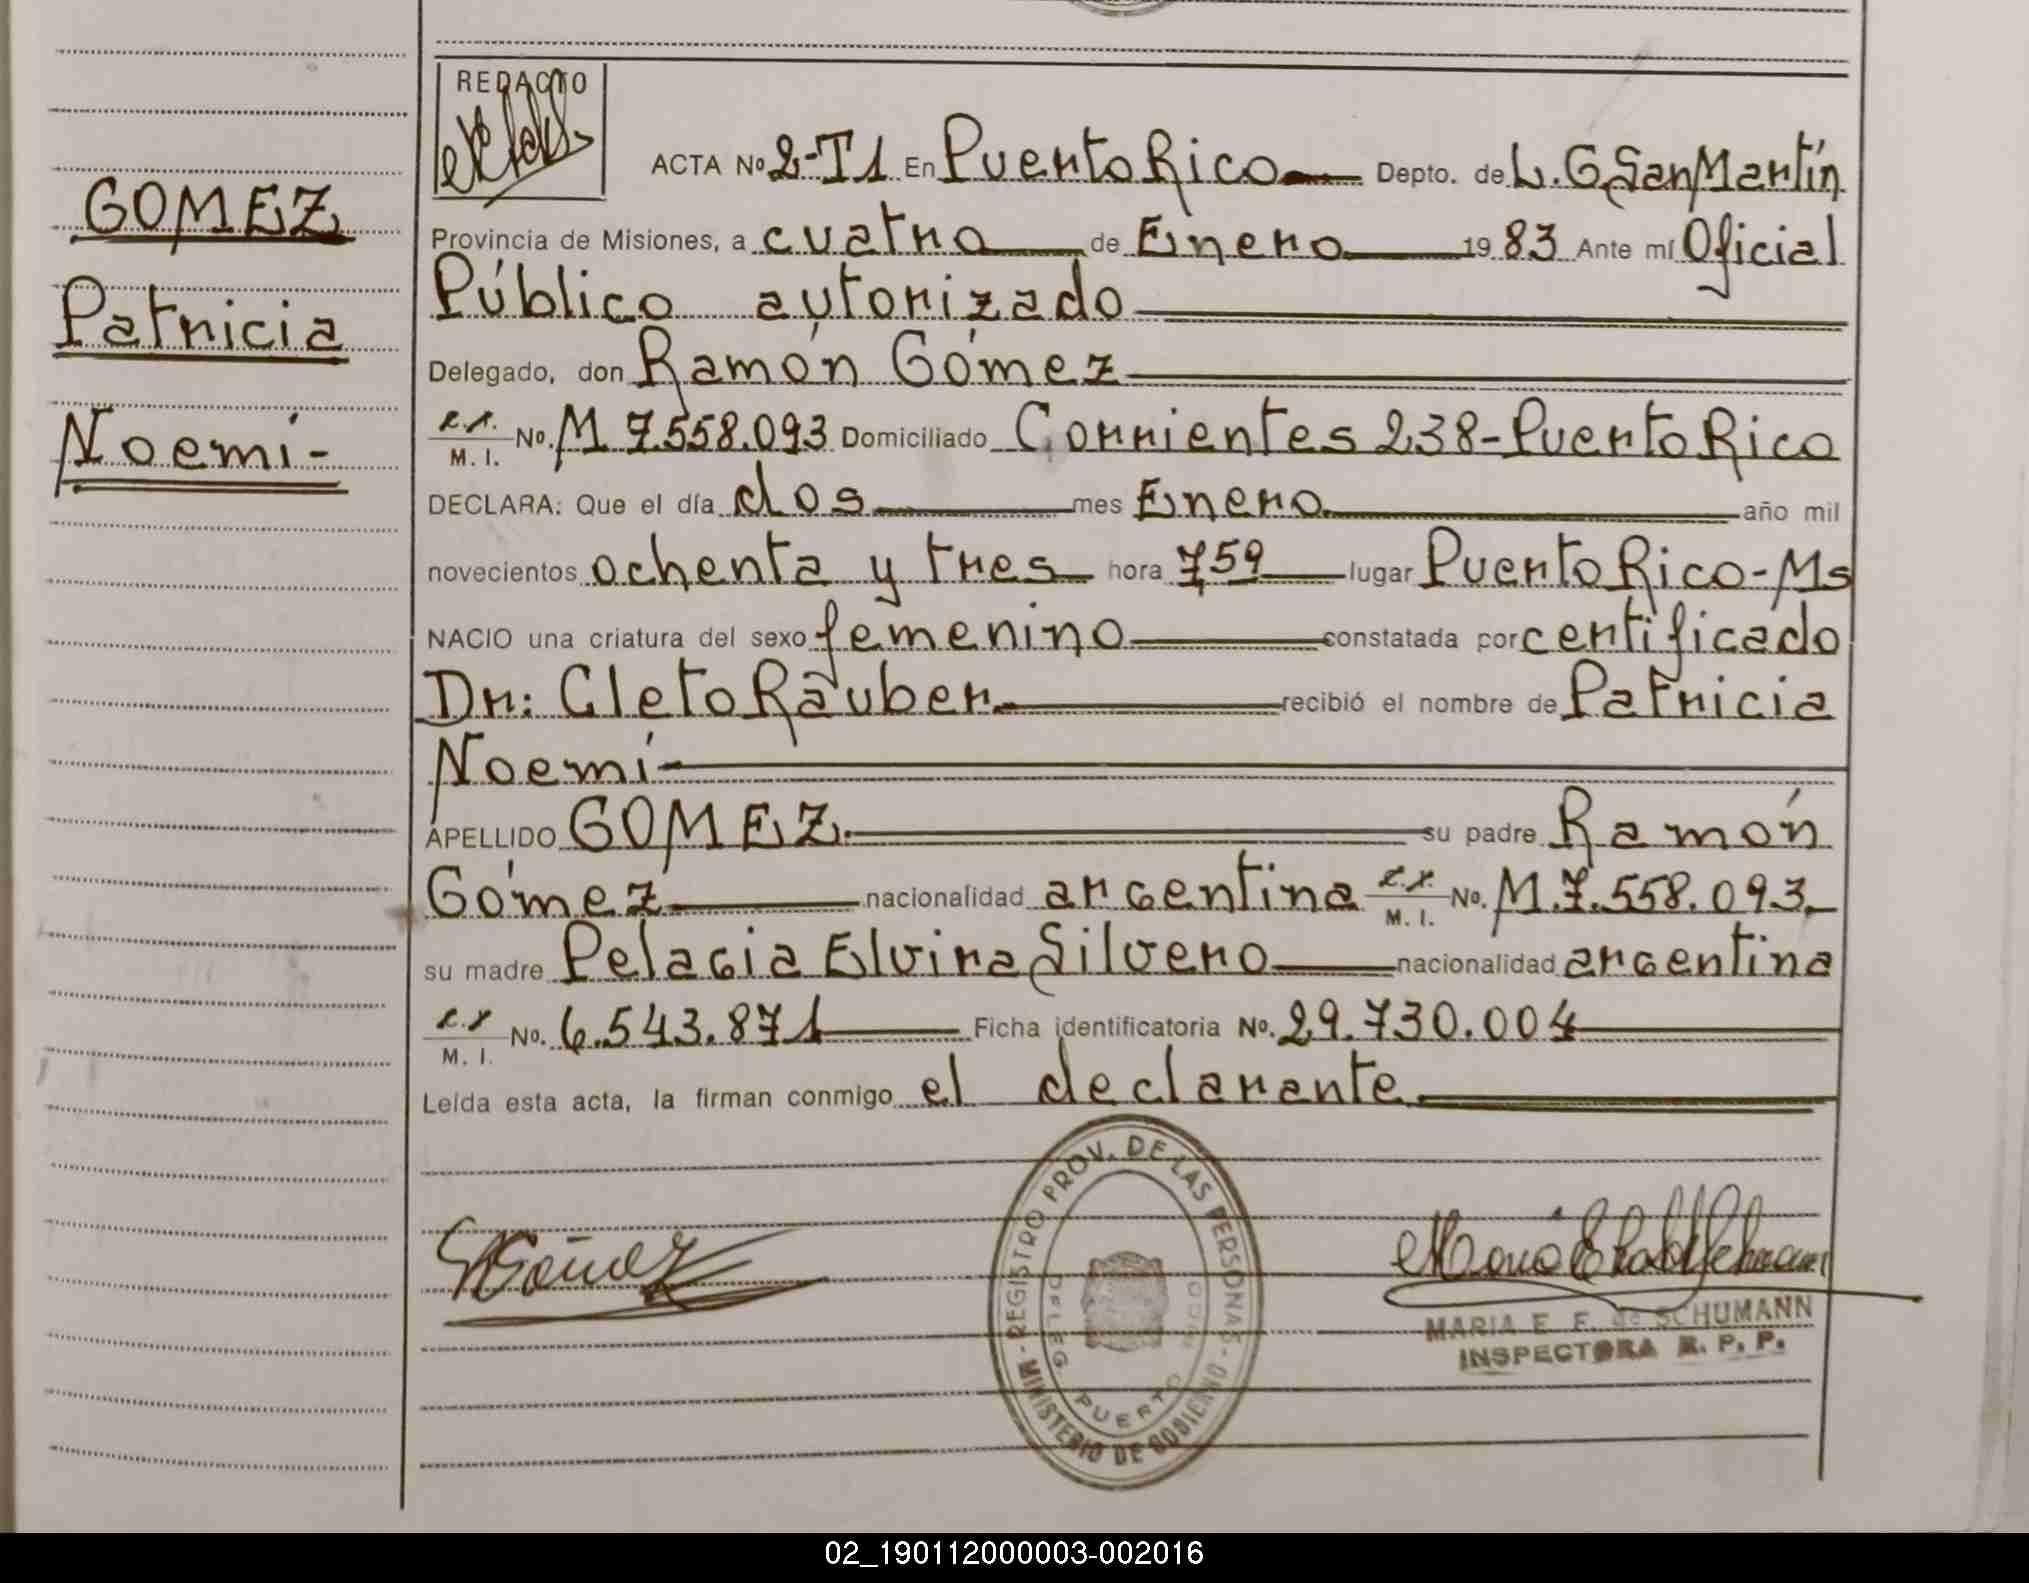 REDACTO
ACTA Nº 2-T1 En Puerto Rico Depto. de L. G. San Martín
GOMEZ
Provincia de Misiones, a cuatro de Enero 1983 Ante mí Oficial
Público autorizado
Patricia
Delegado, don Ramón Gómez
Noemí-
M. I. No. M 7.558.093 Domiciliado Corrientes 238-Puerto Rico
DECLARA: Que el día dos mes Enero año mil
novecientos ochenta y tres hora 7 59 lugar Puerto Rico-Ms
NACIO una criatura del sexo femenino constatada por certificado
Dr: Cleto Räuber recibió el nombre de Patricia
Noemí
APELLIDO GOMEZ su padre Ramón
Gómez nacionalidad argentina M. I. No. M.7.558.093
su madre Pelagia Elvira Silvero nacionalidad argentina
M. I. No. 6.543.871 Ficha identificatoria No. 29.730.004
Leída esta acta, la firman conmigo el declarante
REGISTRO PROV. DE LAS PERSONAS - MINISTERIO DE GOBIERNO
DELEG PUERTO
Gómez
MARIA E. F. de SCHUMANN
INSPECTORA R. P. P.
02_190112000003-002016